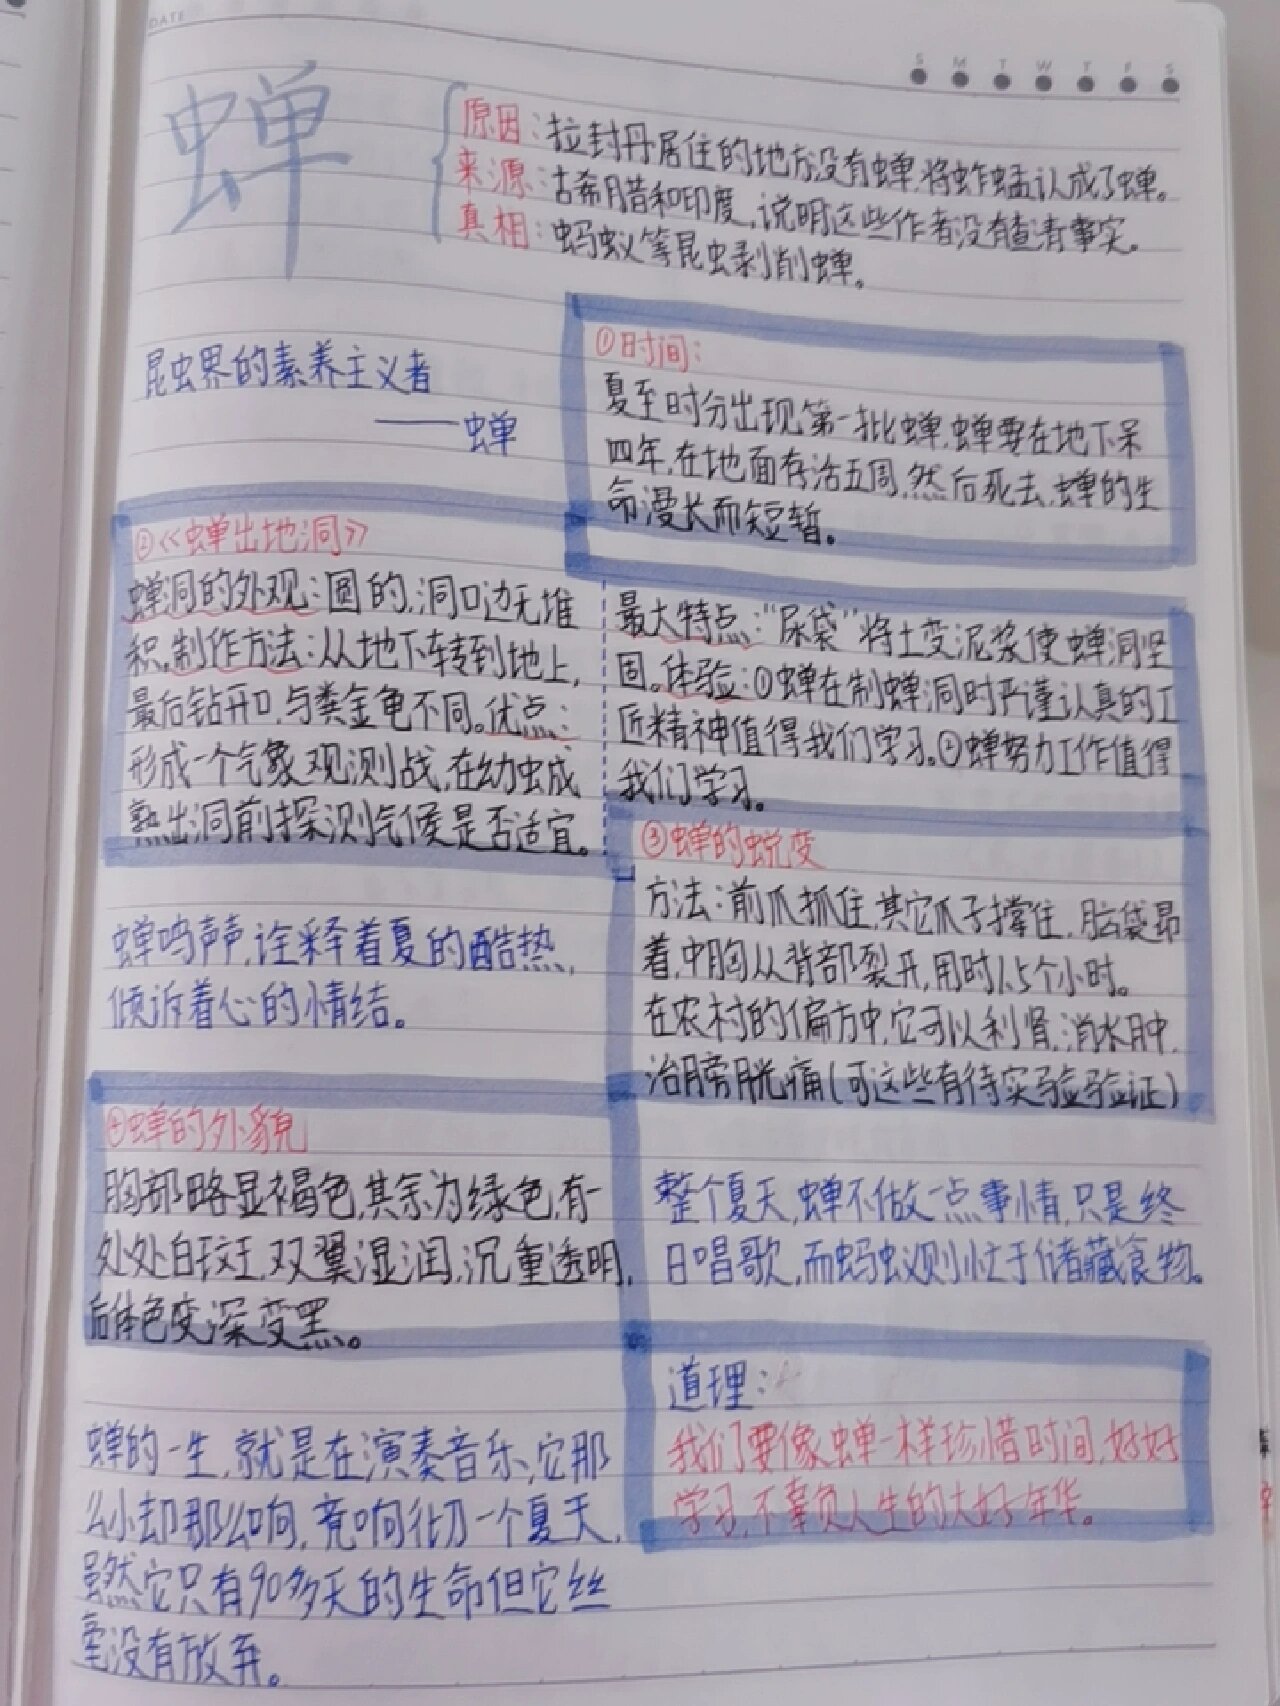 DATE
S M T W T F S
蝉
原因：拉封丹居住的地方没有蝉，将蚱蜢认成了蝉。
来源：古希腊和印度，说明这些作者没有查清事实。
真相：蚂蚁等昆虫剥削蝉。
昆虫界的素养主义者
——蝉
①时间：
夏至时分出现第一批蝉，蝉要在地下呆
四年，在地面存活五周，然后死去，蝉的生
命漫长而短暂。
②《蝉出地洞》
蝉洞的外观：圆的，洞口边无堆
积。制作方法：从地下转到地上，
最后钻开口，与粪金龟不同。优点：
形成一个气象观测战，在幼虫成
熟出洞前探测气候是否适宜。
最大特点：“尿袋”将土变泥浆使蝉洞坚
固。体验：①蝉在制蝉洞时严谨认真的工
匠精神值得我们学习。②蝉努力工作值得
我们学习。
③蝉的蜕变
方法：前爪抓住，其它爪子撑住，脑袋昂
着，中胸从背部裂开，用时1.5个小时。
在农村的偏方中，它可以利肾，消水肿，
治膀胱痛（可这些有待实验验证）
蝉鸣声声，诠释着夏的酷热，
倾诉着心的情结。
④蝉的外貌
胸部略显褐色，其余为绿色，有一
处处白斑，双翼湿润，沉重透明，
后体色变深变黑。
整个夏天，蝉不做一点事情，只是终
日唱歌，而蚂蚁则忙于储藏食物。
道理：
我们要像蝉一样珍惜时间，好好
学习，不辜负人生的大好年华。
蝉的一生，就是在演奏音乐，它那
么小却那么响，竟响彻一个夏天，
虽然它只有90多天的生命但它丝
毫没有放弃。